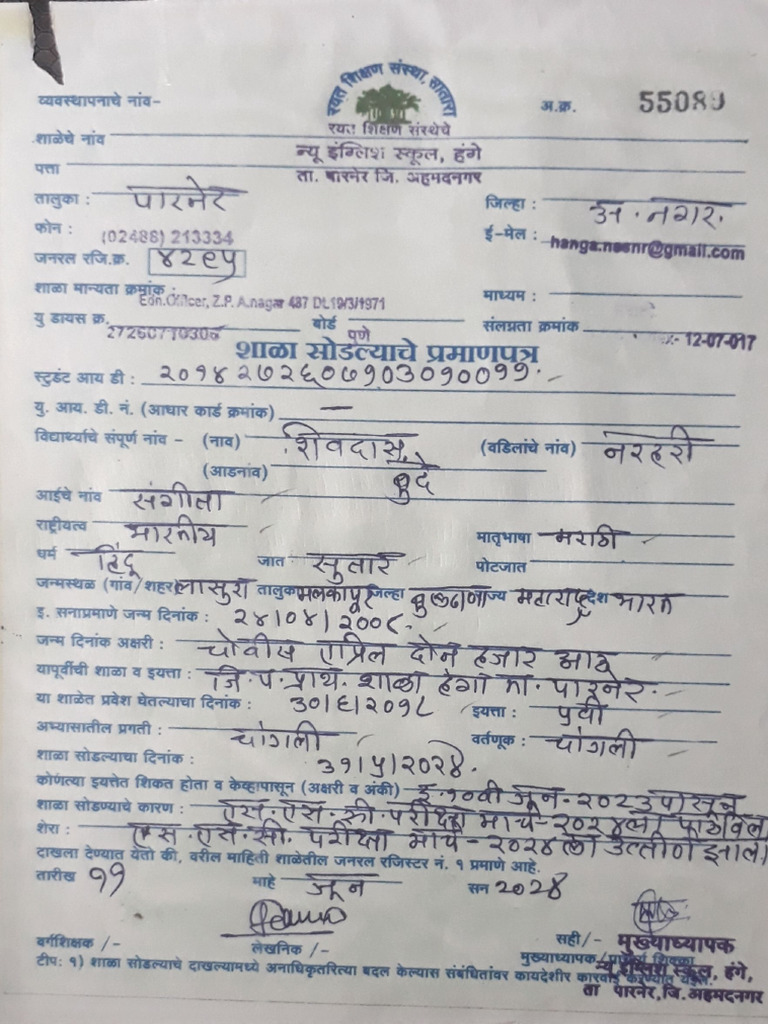 रयत शिक्षण संस्था, सातारा
व्यवस्थापनाचे नांव- अ.क्र. 55089
रयत शिक्षण संस्थेचे
शाळेचे नांव न्यू इंग्लिश स्कूल, हंगे
पत्ता ता. पारनेर जि. अहमदनगर
तालुका : पारनेर जिल्हा : अ. नगर.
फोन : (02488) 213334 ई-मेल : hanga.nesnr@gmail.com
जनरल रजि.क्र. ४२९५
शाळा मान्यता क्रमांक : Edn.Officer, Z.P. A.nagar 487 DL19/3/1971 माध्यम :
यु डायस क्र. बोर्ड पुणे संलग्नता क्रमांक 12-07-017
शाळा सोडल्याचे प्रमाणपत्र
स्टुडंट आय डी : २०१४२७२६०७१०३०१००११.
यु. आय. डी. नं. (आधार कार्ड क्रमांक) —
विद्यार्थ्याचे संपूर्ण नांव - (नाव) शिवदास (वडिलांचे नांव) नरहरी
(आडनांव) बुदे
आईचे नांव संगीता
राष्ट्रीयत्व भारतीय मातृभाषा मराठी
धर्म हिंदू जात सुतार पोटजात
जन्मस्थळ (गांव/शहर) लासुरा तालुका मलकापूर जिल्हा बुलढाणा राज्य महाराष्ट्र देश भारत
इ. सनाप्रमाणे जन्म दिनांक : २४/०४/२००८.
जन्म दिनांक अक्षरी : चोवीस एप्रिल दोन हजार आठ
यापूर्वीची शाळा व इयत्ता : जि. प. प्राथ. शाळा हंगा ता. पारनेर.
या शाळेत प्रवेश घेतल्याचा दिनांक : ३०/६/२०१८ इयत्ता : ५वी
अभ्यासातील प्रगती : चांगली वर्तणूक : चांगली
शाळा सोडल्याचा दिनांक : ३१/५/२०२४.
कोणत्या इयत्तेत शिकत होता व केव्हापासून (अक्षरी व अंकी) इ. १०वी जून-२०२३ पासून
शाळा सोडण्याचे कारण : एस. एस. सी. परीक्षा मार्च-२०२४ला पाठविले
शेरा : एस. एस. सी. परीक्षा मार्च-२०२४ला उत्तीर्ण झाला
दाखला देण्यात येतो की, वरील माहिती शाळेतील जनरल रजिस्टर नं. १ प्रमाणे आहे.
तारीख ११ माहे जून सन २०२४
वर्गशिक्षक /- लेखनिक /- सही/- मुख्याध्यापक
मुख्याध्यापक/प्राचार्य शिक्का
टीप: १) शाळा सोडल्याचे दाखल्यामध्ये अनाधिकृतरित्या बदल केल्यास संबंधितांवर कायदेशीर कारवाई करण्यात येईल.
न्यू इंग्लिश स्कूल, हंगे,
ता पारनेर, जि. अहमदनगर